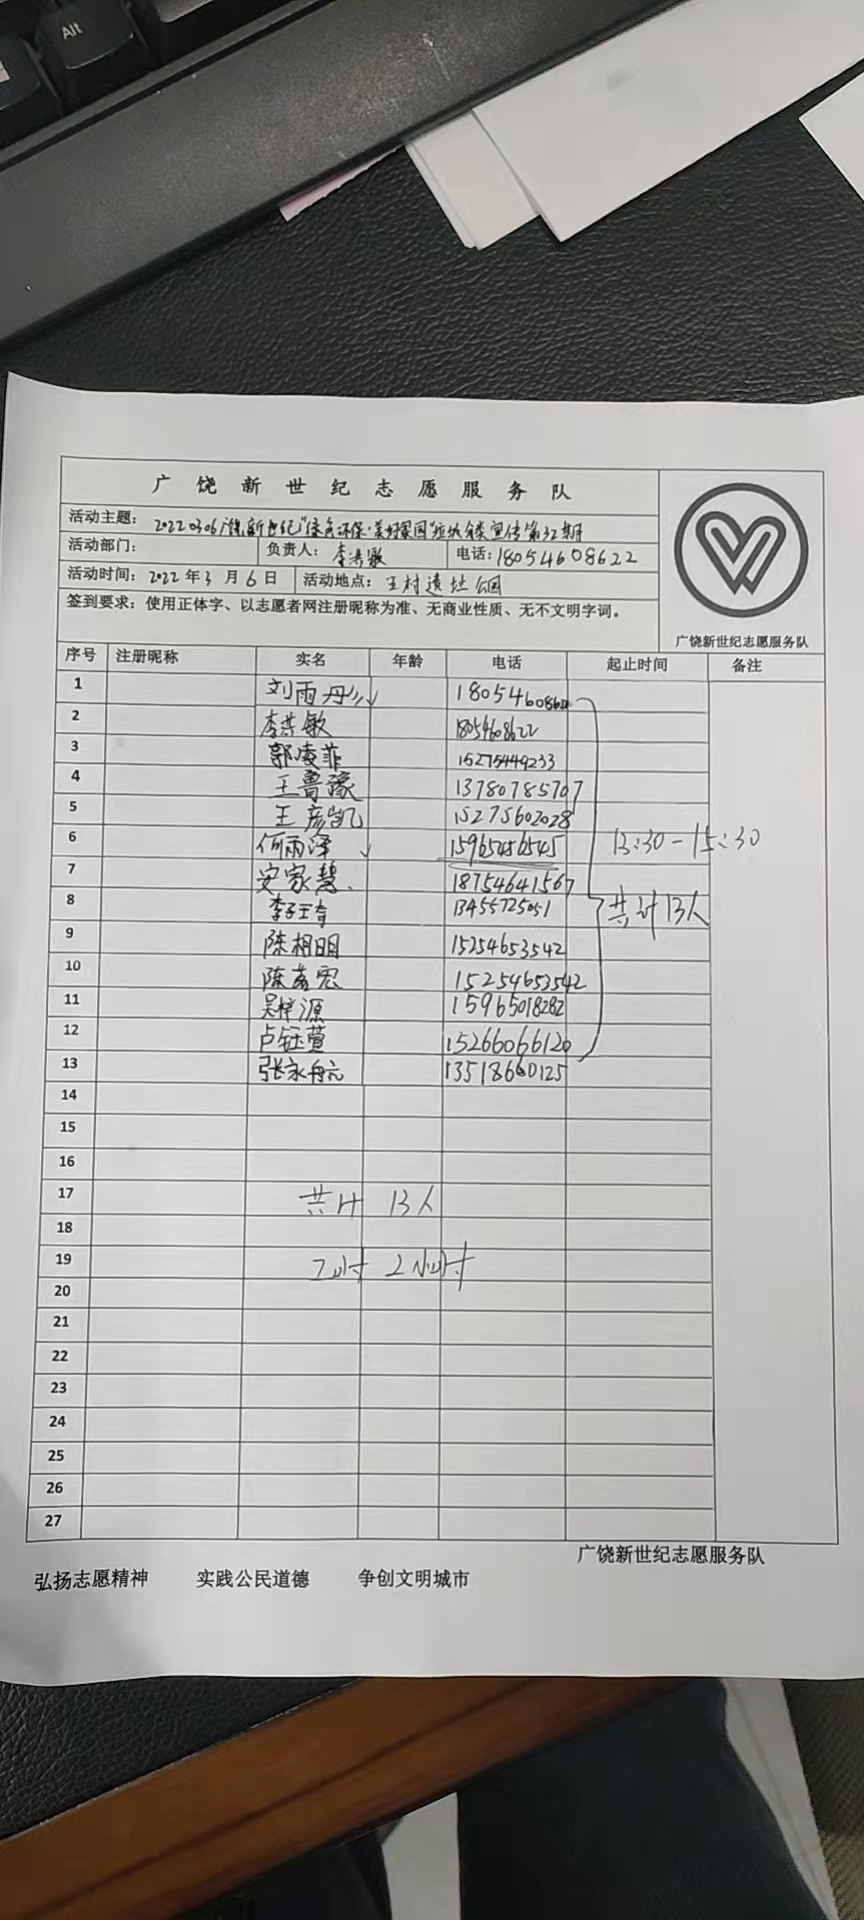 Alt
广饶新世纪志愿服务队
活动主题： 20220306广饶新世纪"绿色环保·美好家园"垃圾分类宣传第32期
活动部门： 负责人： 李洪敏 电话：18054608622
活动时间：2022年3月6日 活动地点：王村遗址公园
签到要求：使用正体字、以志愿者网注册昵称为准、无商业性质、无不文明字词。
广饶新世纪志愿服务队
序号 注册昵称 实名 年龄 电话 起止时间 备注
1 刘雨丹 18054608622
2 李洪敏 18054608622
3 郭凌菲 15275449233
4 王鲁豫 13780785707
5 王彦凯 15275602028
6 何雨泽 15965286545 13:30-15:30
7 安家慧 18754641567
8 李子王 13455725051 共计13人
9 陈相明 15254653542
10 陈 宏 15254653542
11 吴梓源 15965018282
12 卢钰萱 15266066120
13 张永 13518660125
14
15
16
17 共计 13人
18
19 工时 2小时
20
21
22
23
24
25
26
27
广饶新世纪志愿服务队
弘扬志愿精神 实践公民道德 争创文明城市